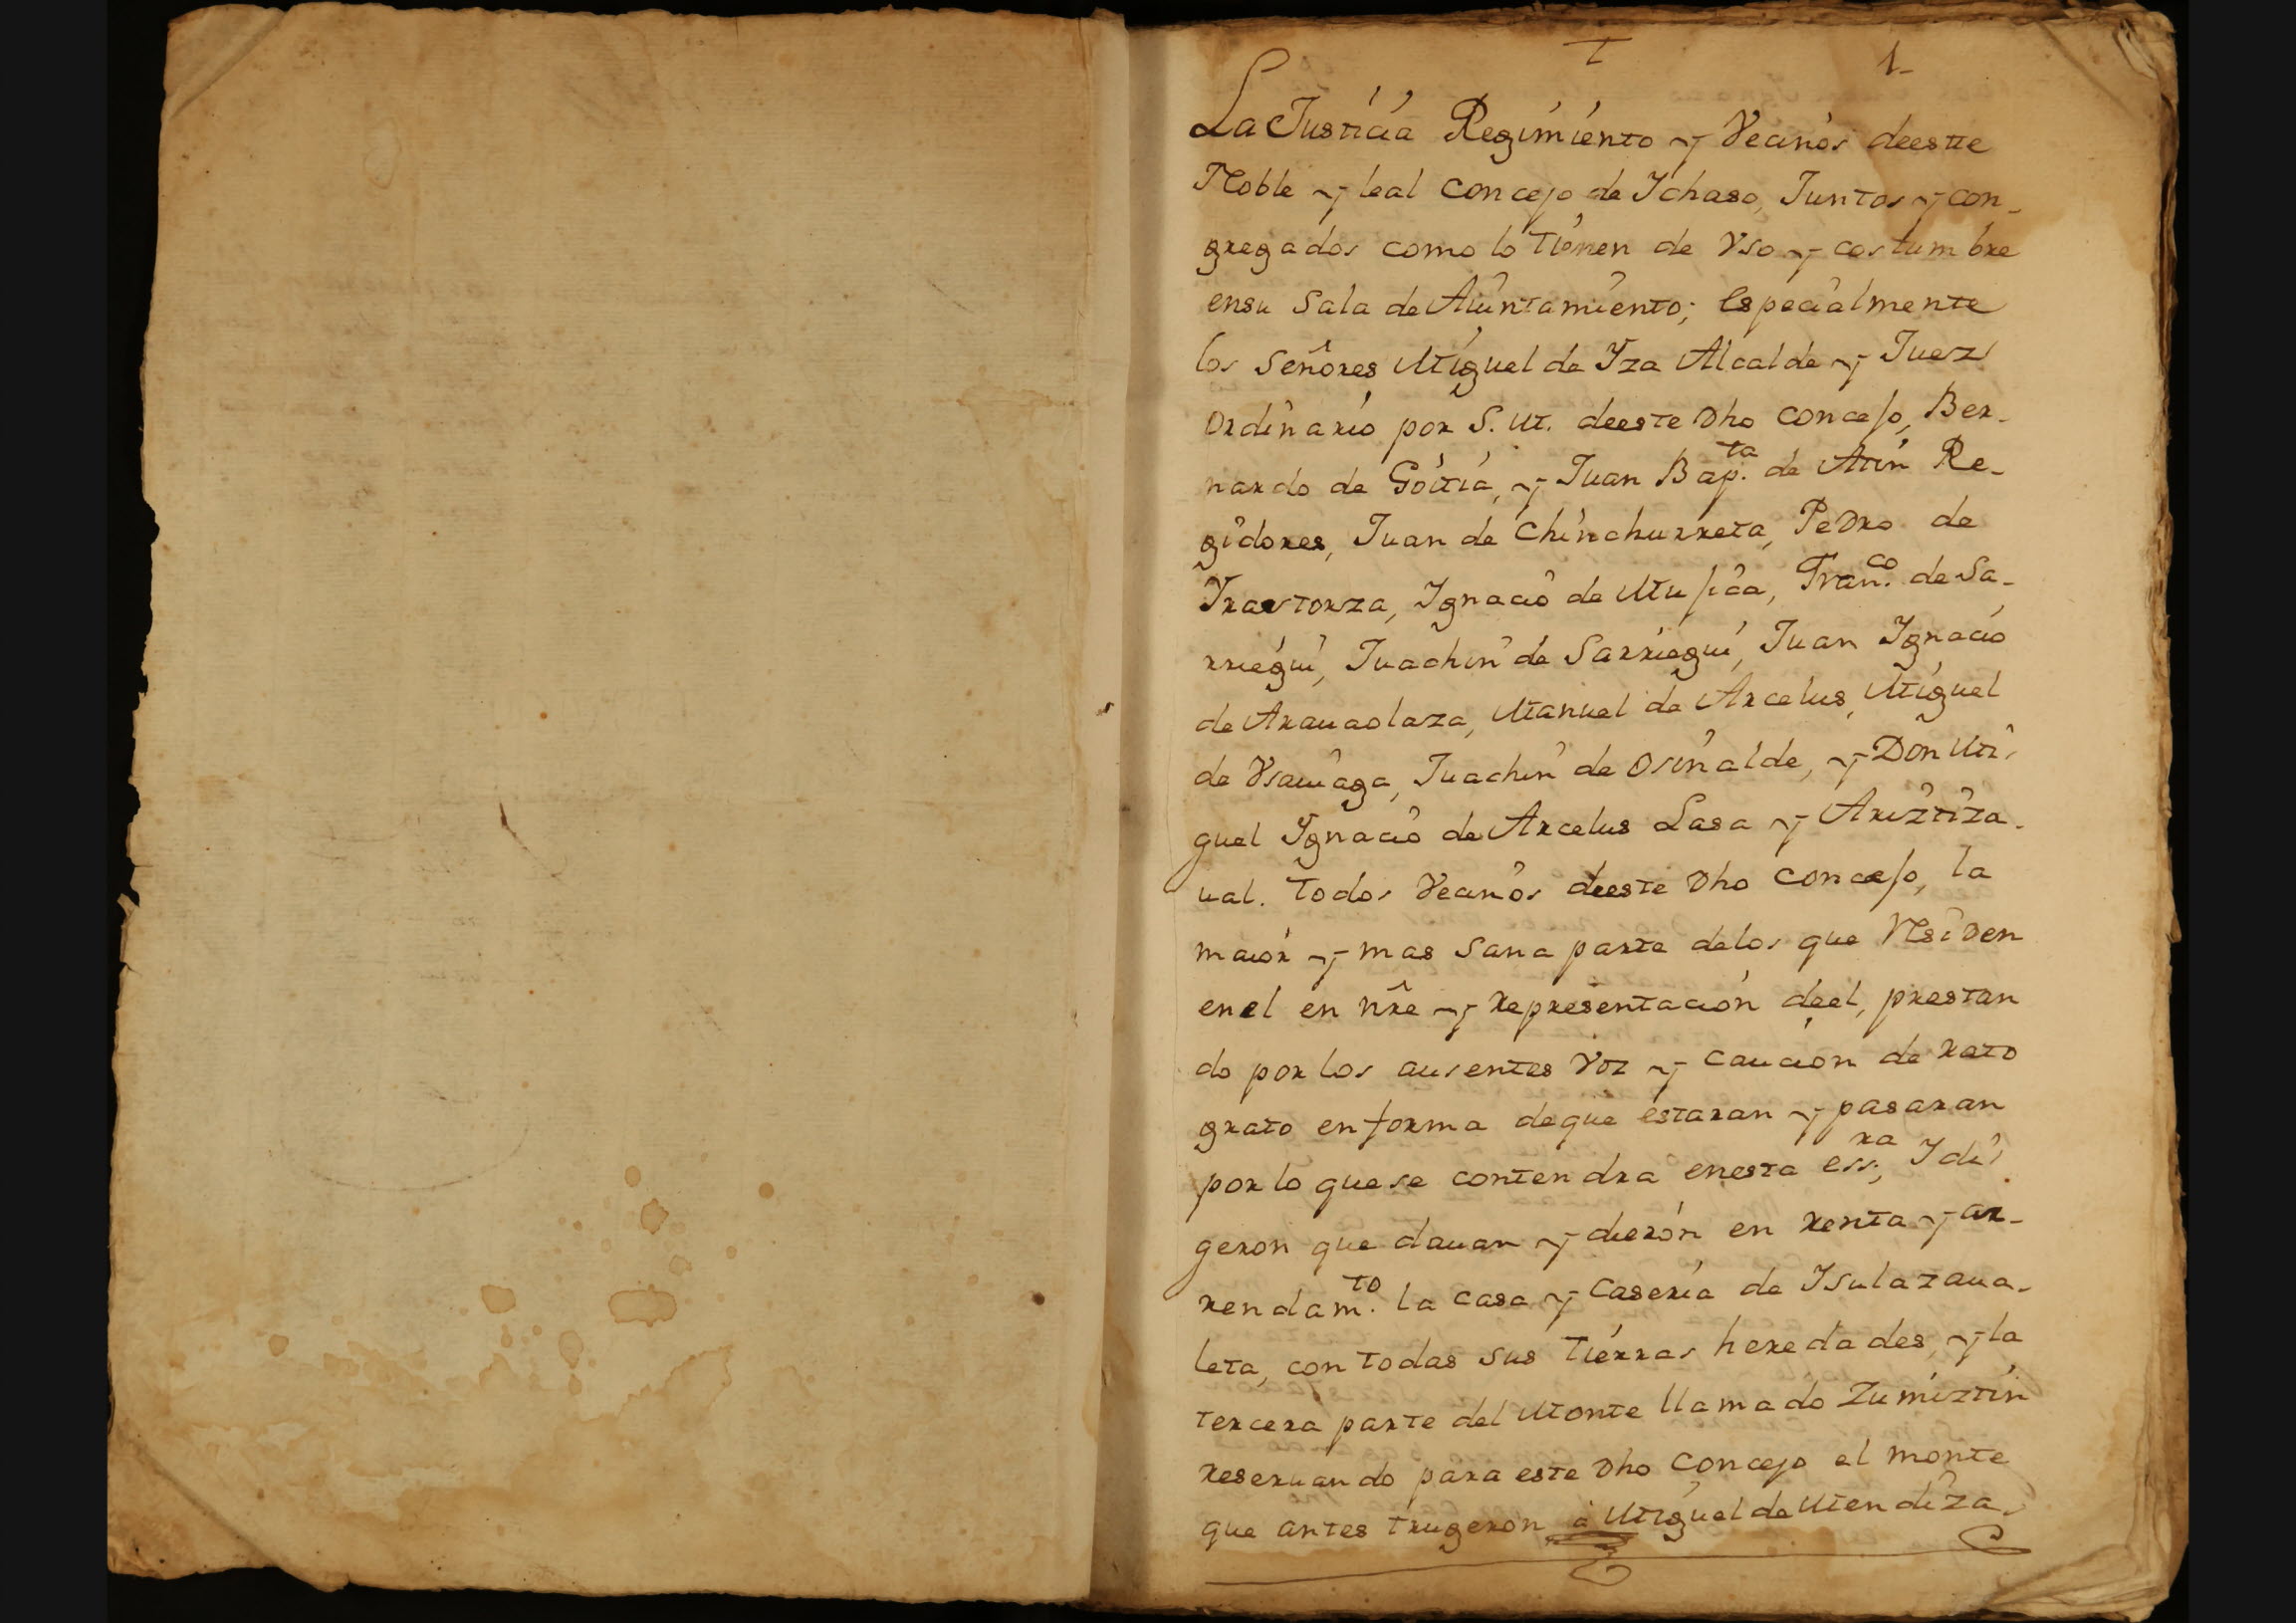 1
La Justicia Regimiento y Vecinos deeste
Noble y leal concejo de Ichaso, Juntos y con-
gregados como lo tienen de Vso y costumbre
ensu sala de Aiuntamiento; especialmente
los señores Miguel de Yza Alcalde y Juez
ordinario por S. M. deeste Dho concejo, Ber-
nardo de Goitia, y Juan Bap.ta de Atin Re-
gidores, Juan de Chinchurreta, Pedro de
Yrastorza, Ignacio de Mujica, Fran.co de Sa-
rriegui, Juachin de Sarriegui, Juan Ignacio
de Arauaolaza, Manuel de Arcelus, Miguel
de Vsauiaga, Juachin de Osinalde, y Don Mi-
guel Ignacio de Arcelus Lasa y Ariztiza-
ual. todos Vecinos deeste Dho concejo, la
maior y mas sana parte delos que Residen
enel en nre y representacion deel, prestan
do por los ausentes Voz y caucion de rato
grato en forma deque estaran y pasaran
por lo quese contendra enesta ess.ra, I di-
geron que dauan y dieron en renta y ar-
rendam.to la casa y caseria de Isulazaua-
leta, con todas sus tierras heredades, y la
tercera parte del Monte llamado Zumiztin
reseruando para este Dho concejo el monte
que antes trugeron a Miguel de Mendiza-